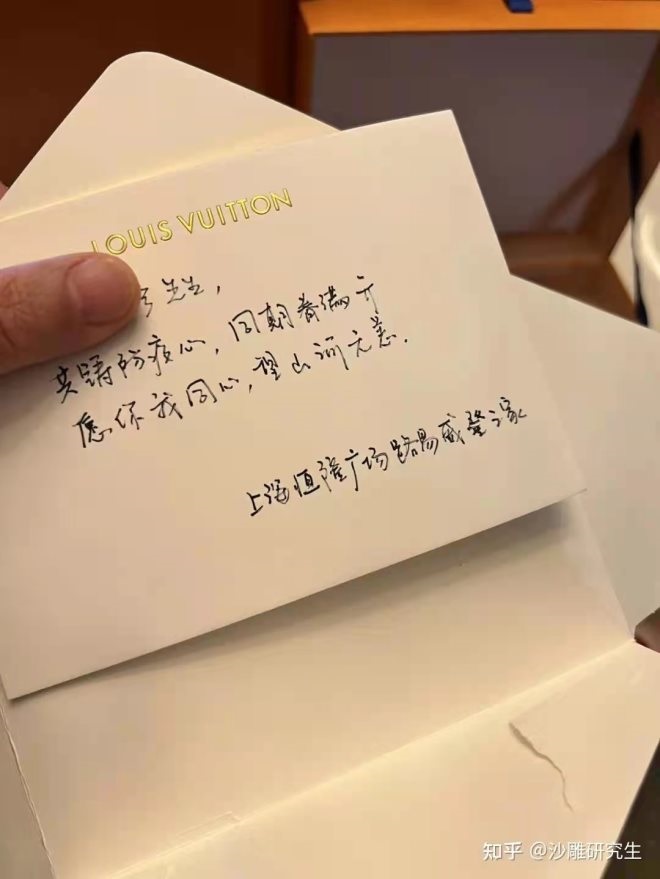 LOUIS VUITTON
先生,
共铸防疫心, 同期春满开
愿你我同心, 望山河无恙.
上海恒隆广场路易威登之家
知乎 @沙雕研究生